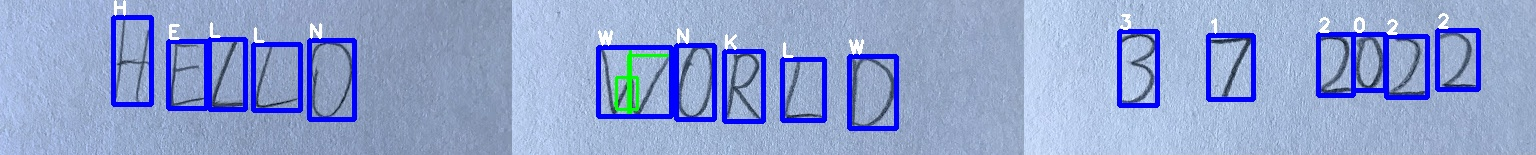 H E L L N
HELLO
W N K L W
WORLD
3 1 2 0 2 2
3 7 2022